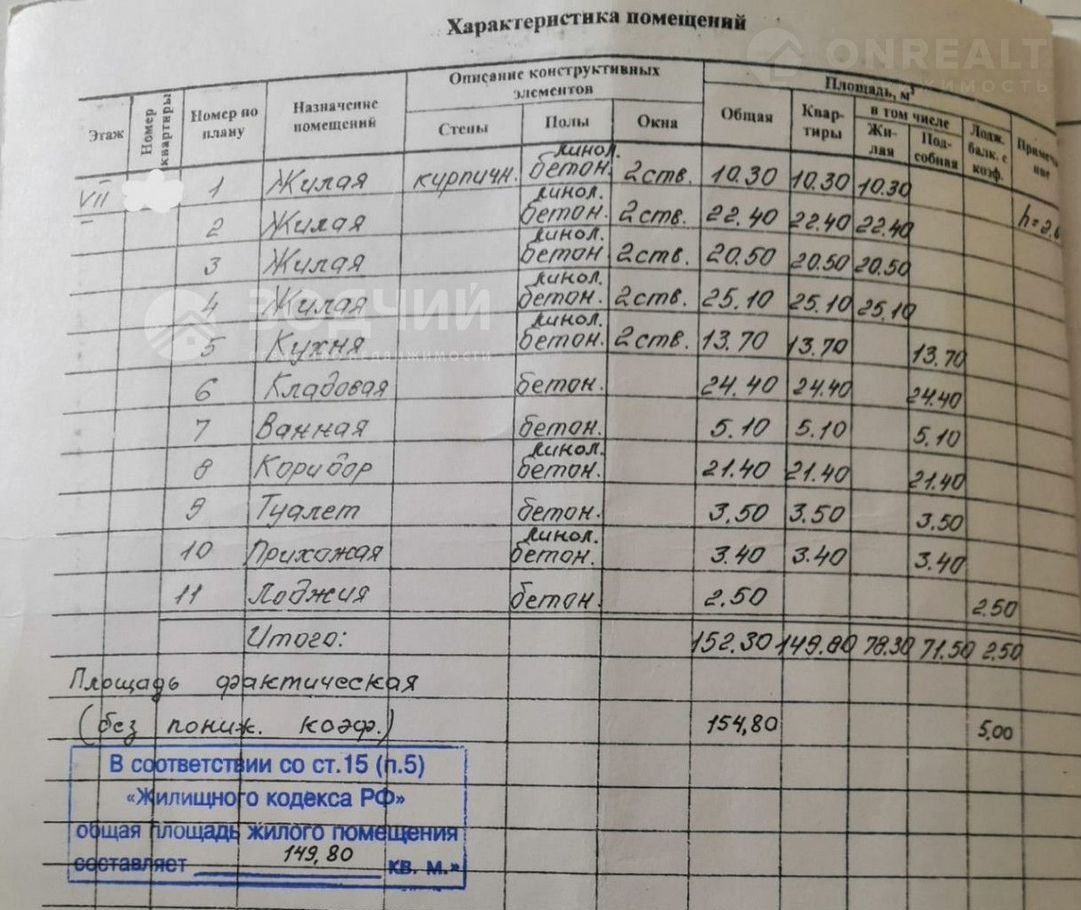 Характеристика помещений
ONREALT
Этаж Номер квартиры Номер по плану Назначение помещений Описание конструктивных элементов Площадь, м²
Стены Полы Окна Общая Квар- тиры в том числе Жи- лая Под- собная Лодж. балк. с коэф.
VII 1 Жилая кирпичн. линол. бетон. 2 ств. 10.30 10.30 10.30
2 Жилая линол. бетон. 2 ств. 22.40 22.40 22.40 h=2,6
3 Жилая линол. бетон 2 ств. 20.50 20.50 20.50
4 Жилая линол. бетон. 2 ств. 25.10 25.10 25.10
ЗОДЧИЙ
5 Кухня линол. бетон. 2 ств. 13.70 13.70 13.70
6 Кладовая бетон. 24.40 24.40 24.40
7 Ванная бетон. 5.10 5.10 5.10
8 Коридор линол. бетон. 21.40 21.40 21.40
9 Туалет бетон. 3.50 3.50 3.50
10 Прихожая линол. бетон. 3.40 3.40 3.40
11 Лоджия бетон. 2.50 2.50
Итого: 152.30 149.80 78.30 71.50 2.50
Площадь фактическая
(без пониж. коэф.) 154,80 5,00
В соответствии со ст.15 (п.5)
«Жилищного кодекса РФ»
общая площадь жилого помещения
составляет 149,80 кв. м.»